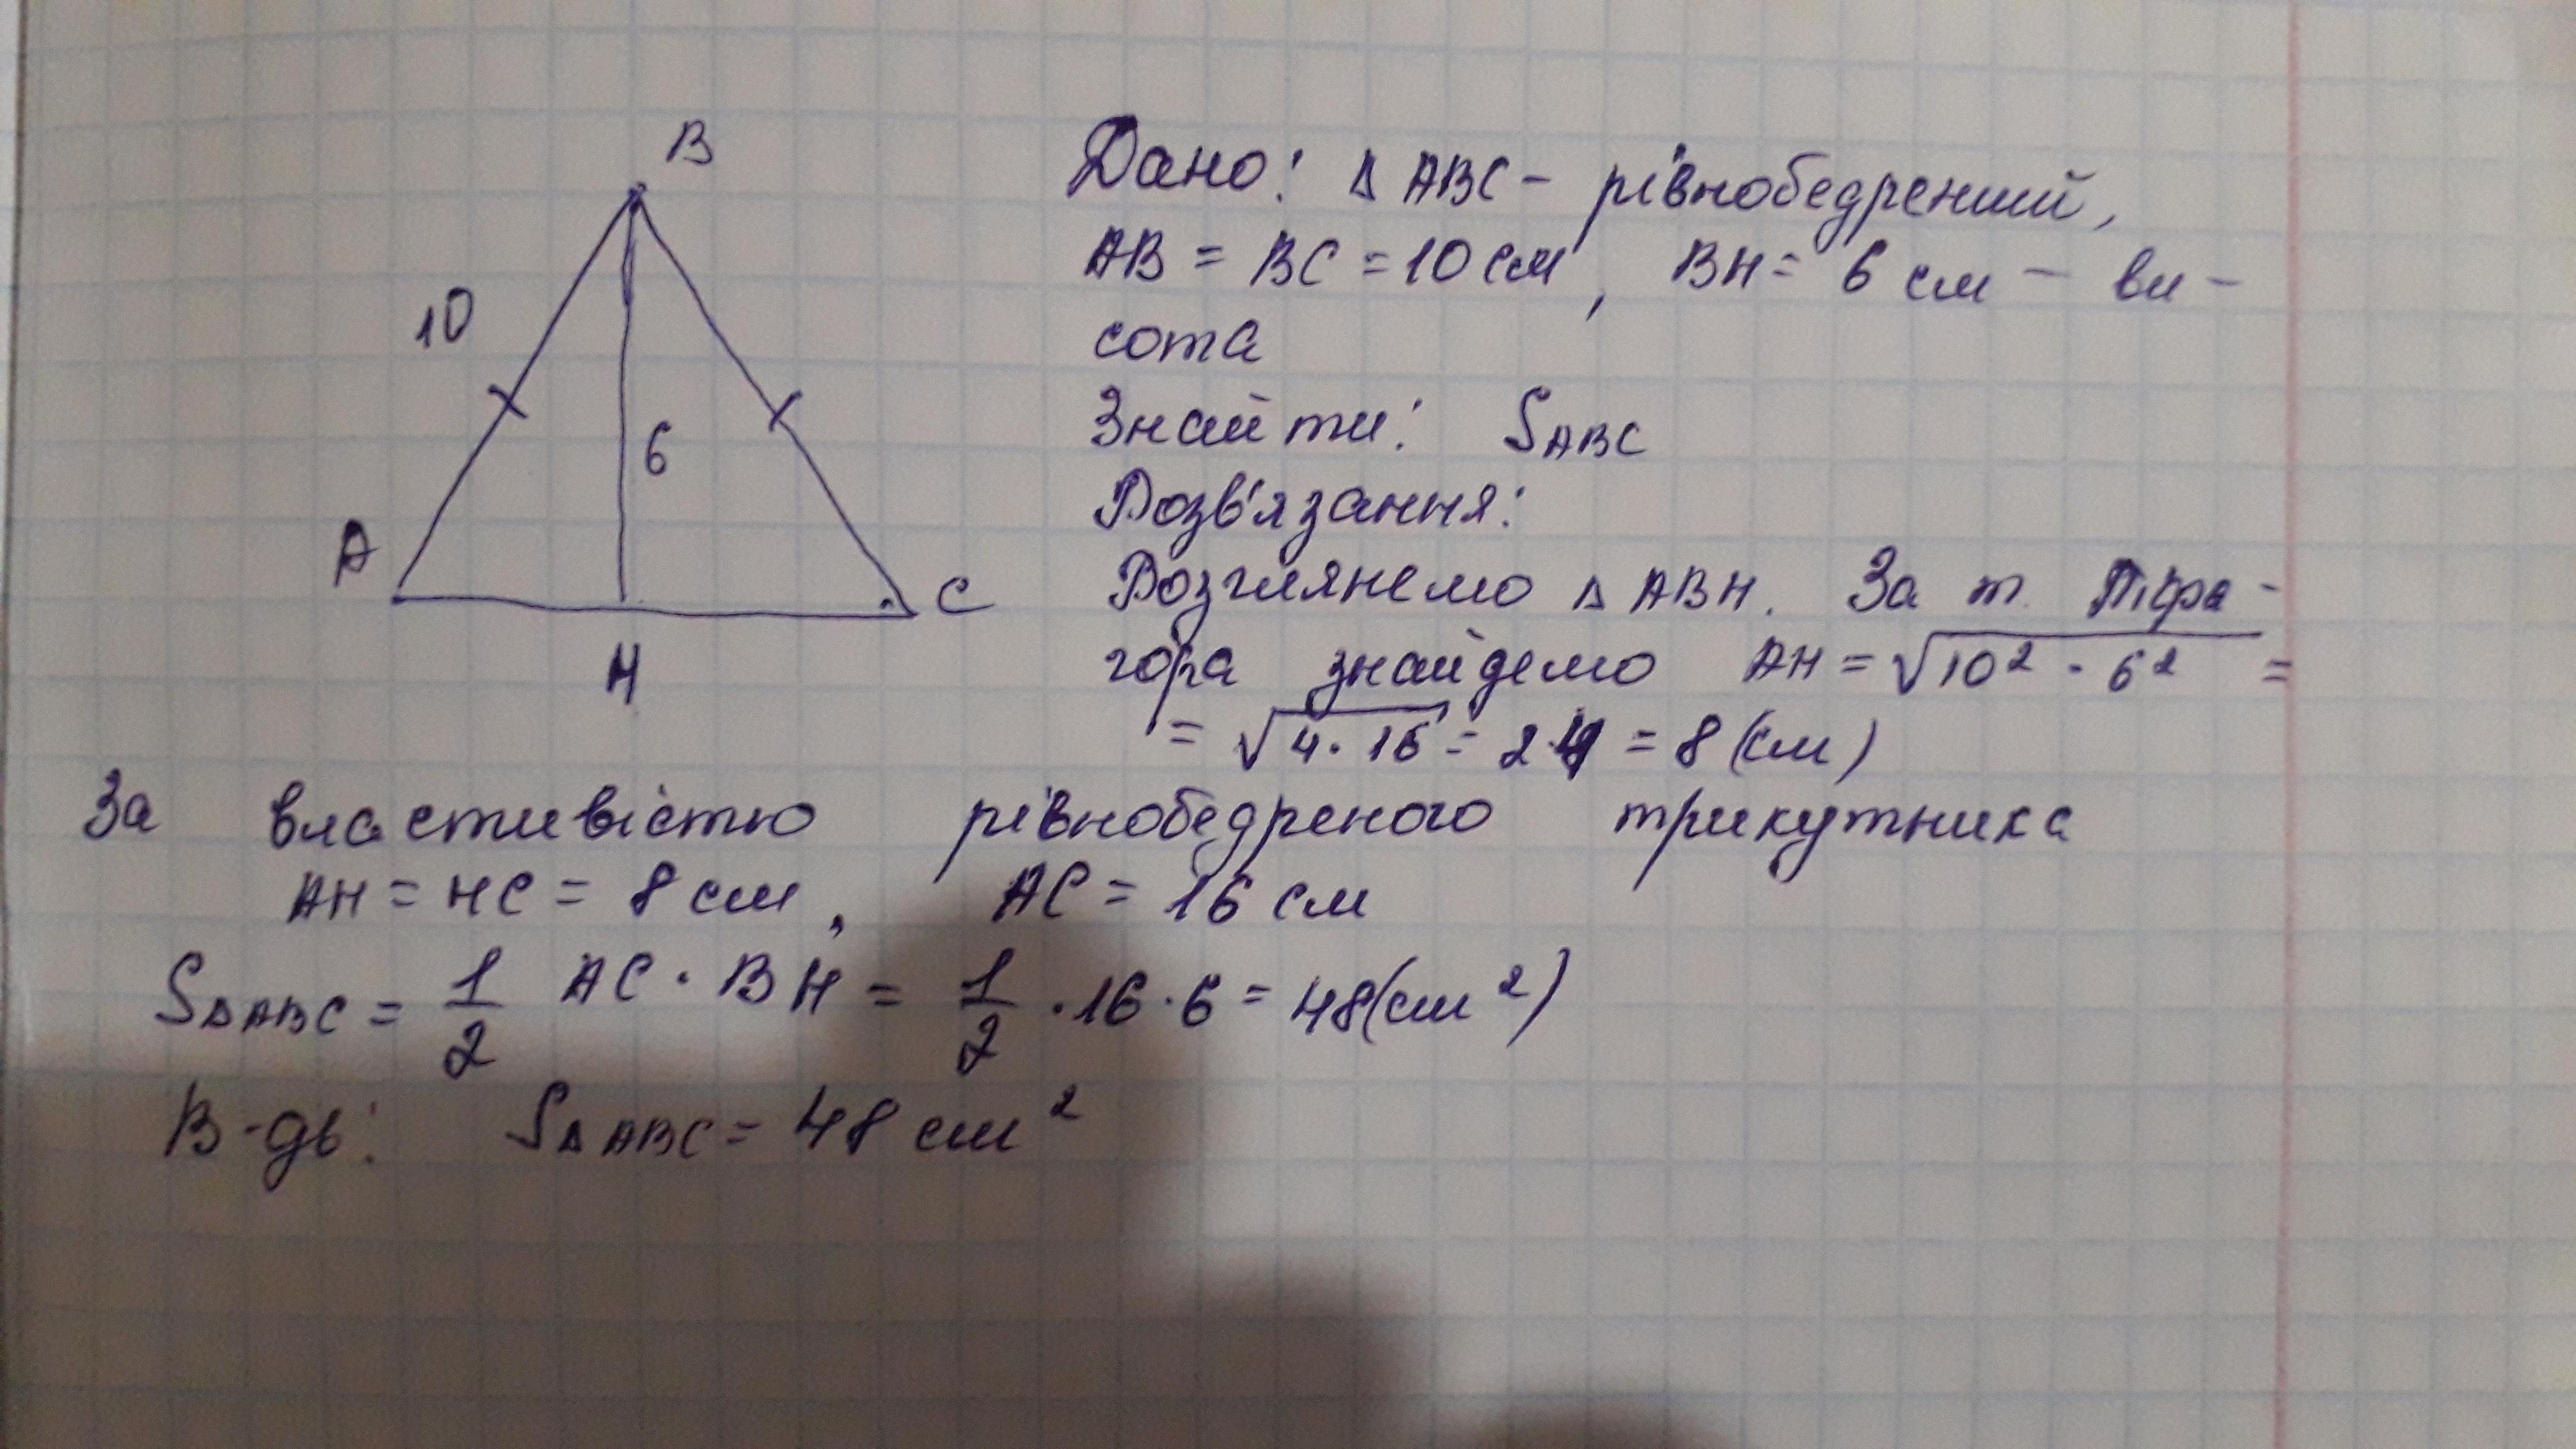 B
10
6
A
C
H
Дано: △ ABC – рівнобедренний,
AB = BC = 10 см, BH = 6 см – ви-
сота
Знайти: S ABC
Розв'язання:
Розглянемо △ ABH. За т. Піфа-
гора знайдемо AH = √10² - 6² =
= √4 · 16 = 2·4 = 8 (см)
За властивістю рівнобедреного трикутника
AH = HC = 8 см, AC = 16 см
S△ABC = 1/2 AC · BH = 1/2 · 16 · 6 = 48 (см²)
В-дь: S△ABC = 48 см²